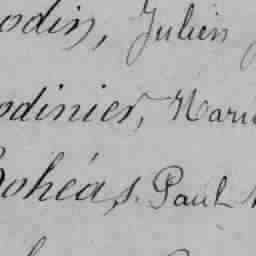 odin, Julien
odinier, Mari
ohéas, Paul